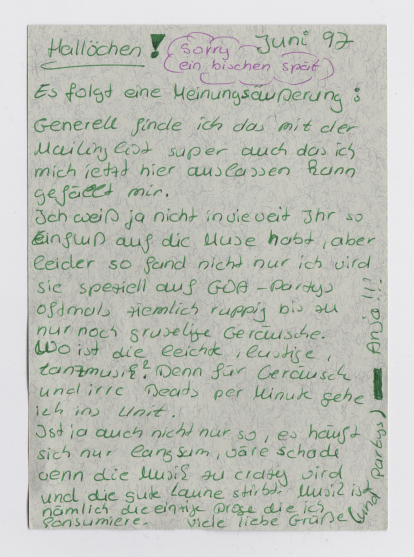 Hallöchen! Juni 97
Sorry
ein bischen spät
Es folgt eine Meinungsäußerung:
Generell finde ich das mit der
Mailinglist super auch das ich
mich jetzt hier auslassen kann
gefällt mir.
Ich weiß ja nicht invieveit Ihr so
Einfluß auf die Muse habt, aber
leider so fand nicht nur ich wird
sie speziell auf GOA-Partys
oftmals ziemlich ruppig bis zu
nur noch gruselige Geräusche.
Wo ist die leichte, lustige,
tanzmusik? Denn für Geräusch
und irre Beats per Minute gehe
ich ins Unit.
Ist ja auch nicht nur so, es häuft
sich nur langsam, wäre schade
wenn die Musik zu crazy wird
und die gute Laune stirbt. Musik ist
nämlich die einzige Droge die ich
konsumiere. Viele liebe Grüße
(und Partys) Anja!!!